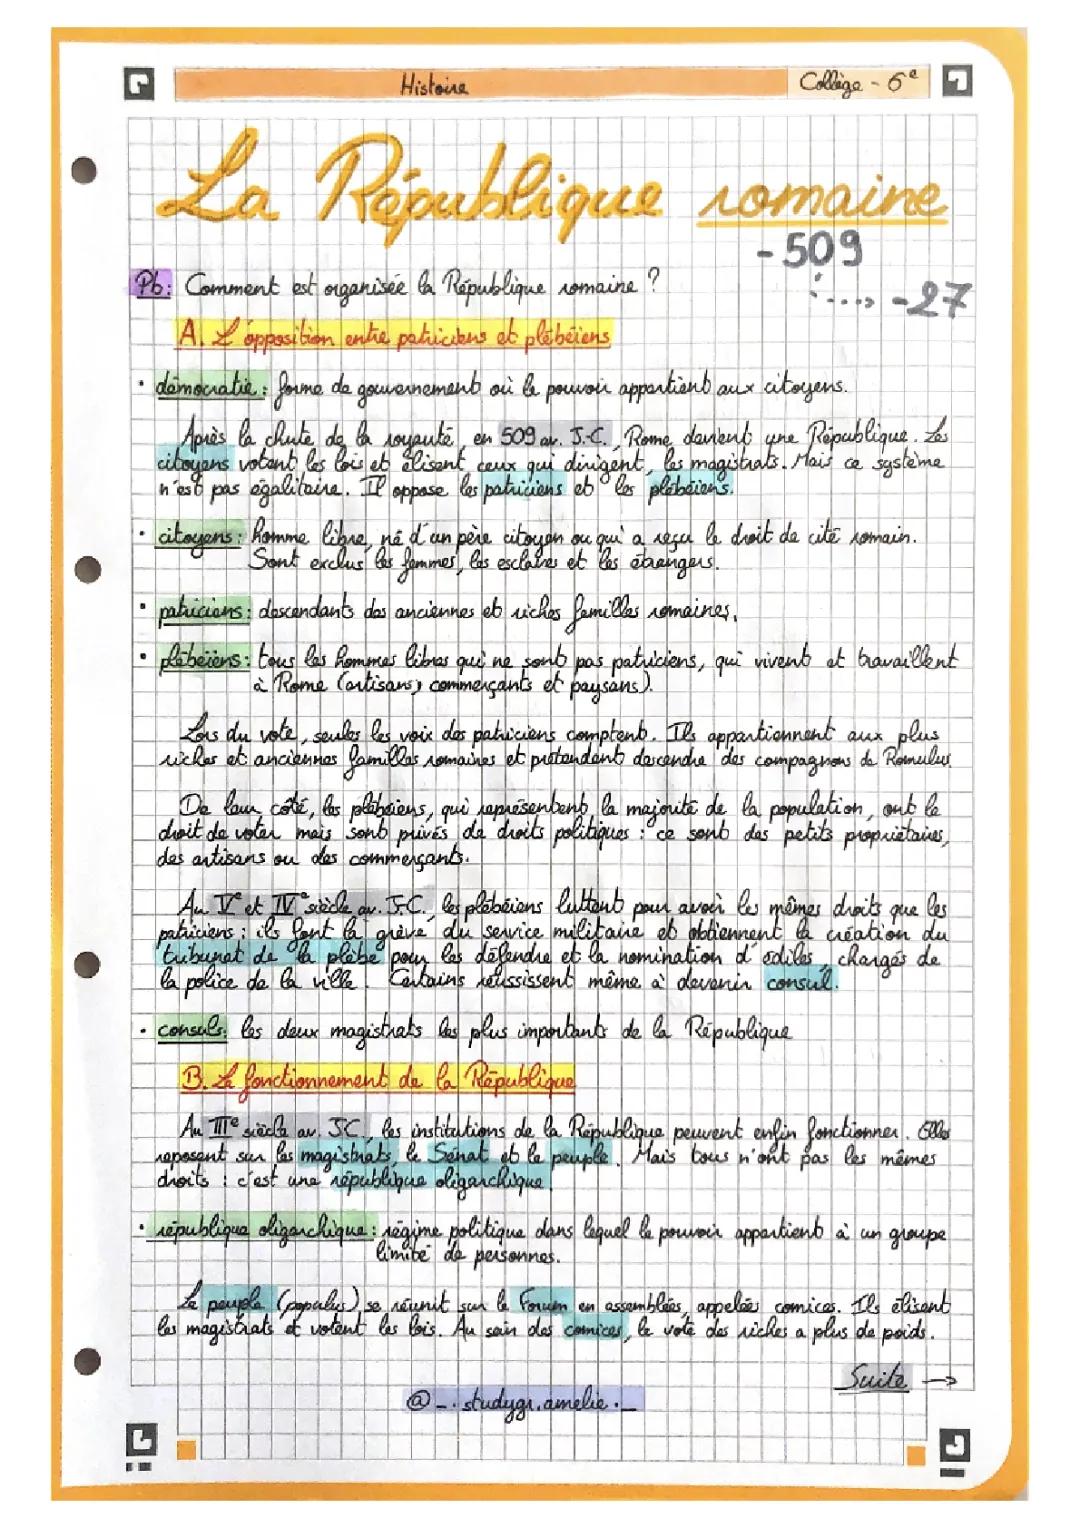 Histoire
Collège - 6e
La République romaine
- 509
-27
Pb: Comment est organisée la République romaine ?
A. L'opposition entre patriciens et plébéiens
• démocratie : forme de gouvernement où le pouvoir appartient aux citoyens.
Après la chute de la royauté, en 509 av. J.-C., Rome devient une République. Les
citoyens votent les lois et élisent ceux qui dirigent, les magistrats. Mais ce système
n'est pas égalitaire. Il oppose les patriciens et les plébéiens.
• citoyens : homme libre, né d'un père citoyen ou qui a reçu le droit de cité romain.
Sont exclus les femmes, les esclaves et les étrangers.
• patriciens : descendants des anciennes et riches familles romaines.
• plébéiens : tous les hommes libres qui ne sont pas patriciens, qui vivent et travaillent
à Rome (artisans, commerçants et paysans).
Lors du vote, seules les voix des patriciens comptent. Ils appartiennent aux plus
riches et anciennes familles romaines et prétendent descendre des compagnons de Romulus.
De leur côté, les plébéiens, qui représentent la majorité de la population, ont le
droit de voter mais sont privés de droits politiques : ce sont des petits propriétaires,
des artisans ou des commerçants.
Au Ve et IVe siècle av. J-C., les plébéiens luttent pour avoir les mêmes droits que les
patriciens ; ils font la grève du service militaire et obtiennent la création du
tribunat de la plèbe pour les défendre et la nomination d'édiles, chargés de
la police de la ville. Certains réussissent même à devenir consul.
• consuls: les deux magistrats les plus importants de la République
B. Le fonctionnement de la République
Au IIIe siècle av. J.C., les institutions de la République peuvent enfin fonctionner. Elles
reposent sur les magistrats, le Sénat et le peuple. Mais tous n'ont pas les mêmes
droits : c'est une république oligarchique.
• république oligarchique : régime politique dans lequel le pouvoir appartient à un groupe
limité de personnes.
Le peuple (populus) se réunit sur le Forum en assemblées, appelées comices. Ils élisent
les magistrats et votent les lois. Au sein des comices, le vote des riches a plus de poids.
Suite →
@_.studygr.amelie._